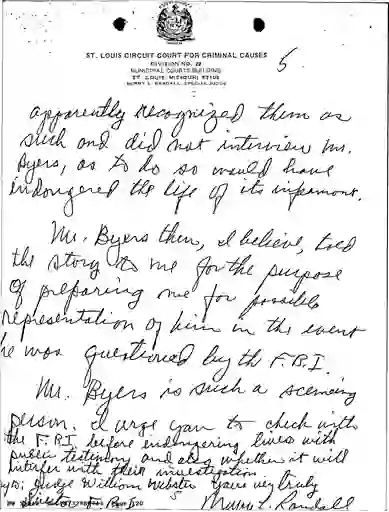 ST. LOUIS CIRCUIT COURT FOR CRIMINAL CAUSES
DIVISION NO. 
MUNICIPAL COURTS BUILDING
ST. LOUIS, MISSOURI 63103
MURRY L. RANDALL, SPECIAL JUDGE
5
apparently recognized them as
such and did not interview Mr.
Byers, as to do so would have
endangered the life of its informant.
Mr. Byers then, I believe, told
the story to me for the purpose
of preparing me for possible
representation of him in the event
he was questioned by th F.B.I.
Mr. Byers is such a scheming
person. I urge you to check with
the F.B.I. before endangering lives with
public testimony and also whether it will
interfer with their investigation.
Judge William Webster Yours very truly
Director F.B.I. Murry L. Randall